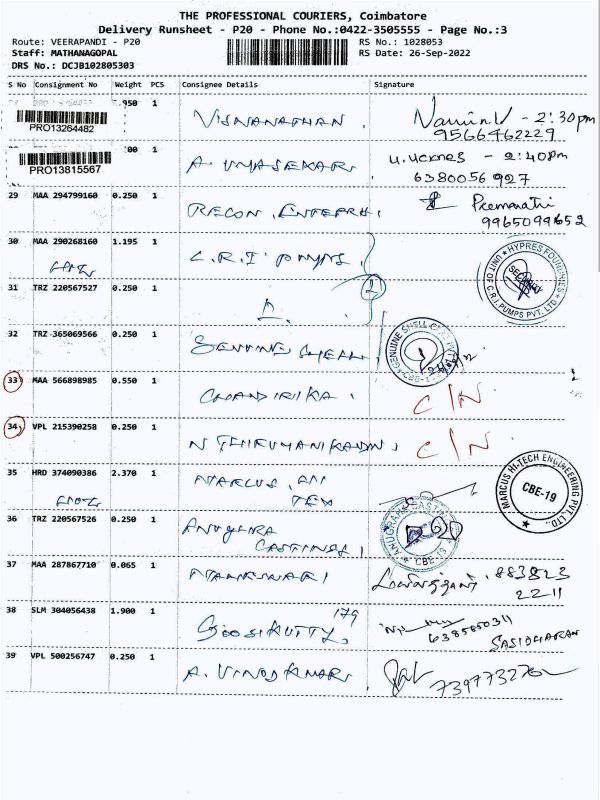 THE PROFESSIONAL COURIERS, Coimbatore
Delivery Runsheet - P20 - Phone No.:0422-3505555 - Page No.:3
Route: VEERAPANDI - P20
RS No.: 1028053
Staff: MATHANAGOPAL
RS Date: 26-Sep-2022
DRS No.: DCJB102805303
S No Consignment No Weight PCS Consignee Details Signature
.950 1
PRO13264482 VISWANATHAN
- 2:30pm
9566462229
00 1
PRO13815567
- 2:40pm
6380056927
29 MAA 294799160 0.250 1 RECON. ENTERPR. Premavathi
9965099652
30 MAA 290268160 1.195 1 C.R.I PUMPS.
UNIT OF C.R.I. PUMPS PVT. LTD HYPRES FOUNDRIES
31 TRZ 220567527 0.250 1
2
32 TRZ 365069566 0.250 1 GENUINE SHELL
GENUINE SHELL
33 MAA 566898985 0.550 1 CHANDIRIKA. C/N
34 VPL 215390258 0.250 1 N THIRUMANIKANDN. C/N
35 HRD 374090386 2.370 1 MARCUS. HI
TEX
MARCUS HI-TECH ENGINEERING PVT. LTD., CBE-19
36 TRZ 220567526 0.250 1 ANUGRAHA
CASTINGS.
CBE-19
37 MAA 287867710 0.065 1
883823
2211
38 SLM 304056438 1.900 1 179
6385850311
SASIDHARAN
39 VPL 500256747 0.250 1 A. VINODKUMAR